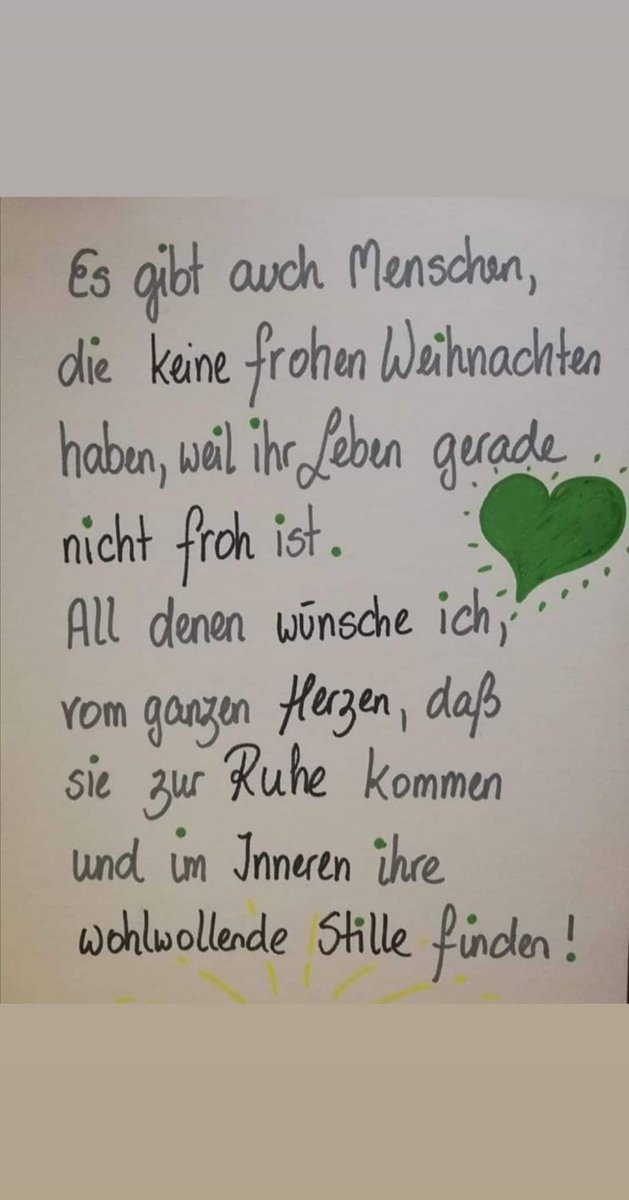 Es gibt auch Menschen,
die keine frohen Weihnachten
haben, weil ihr Leben gerade
nicht froh ist.
All denen wünsche ich,
vom ganzen Herzen, daß
sie zur Ruhe kommen
und im Inneren ihre
wohlwollende Stille finden!